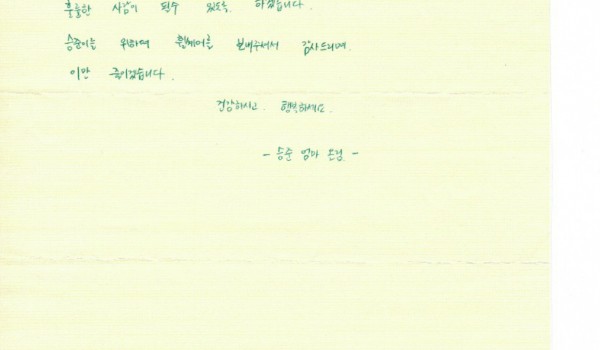 훌륭한 사람이 될수 있도록 하겠습니다.
승준이를 위하여 휠체어를 보내주셔서 감사드리며
이만 줄이겠습니다.
건강하시고. 행복하세요.
- 승준 엄마 드림. -